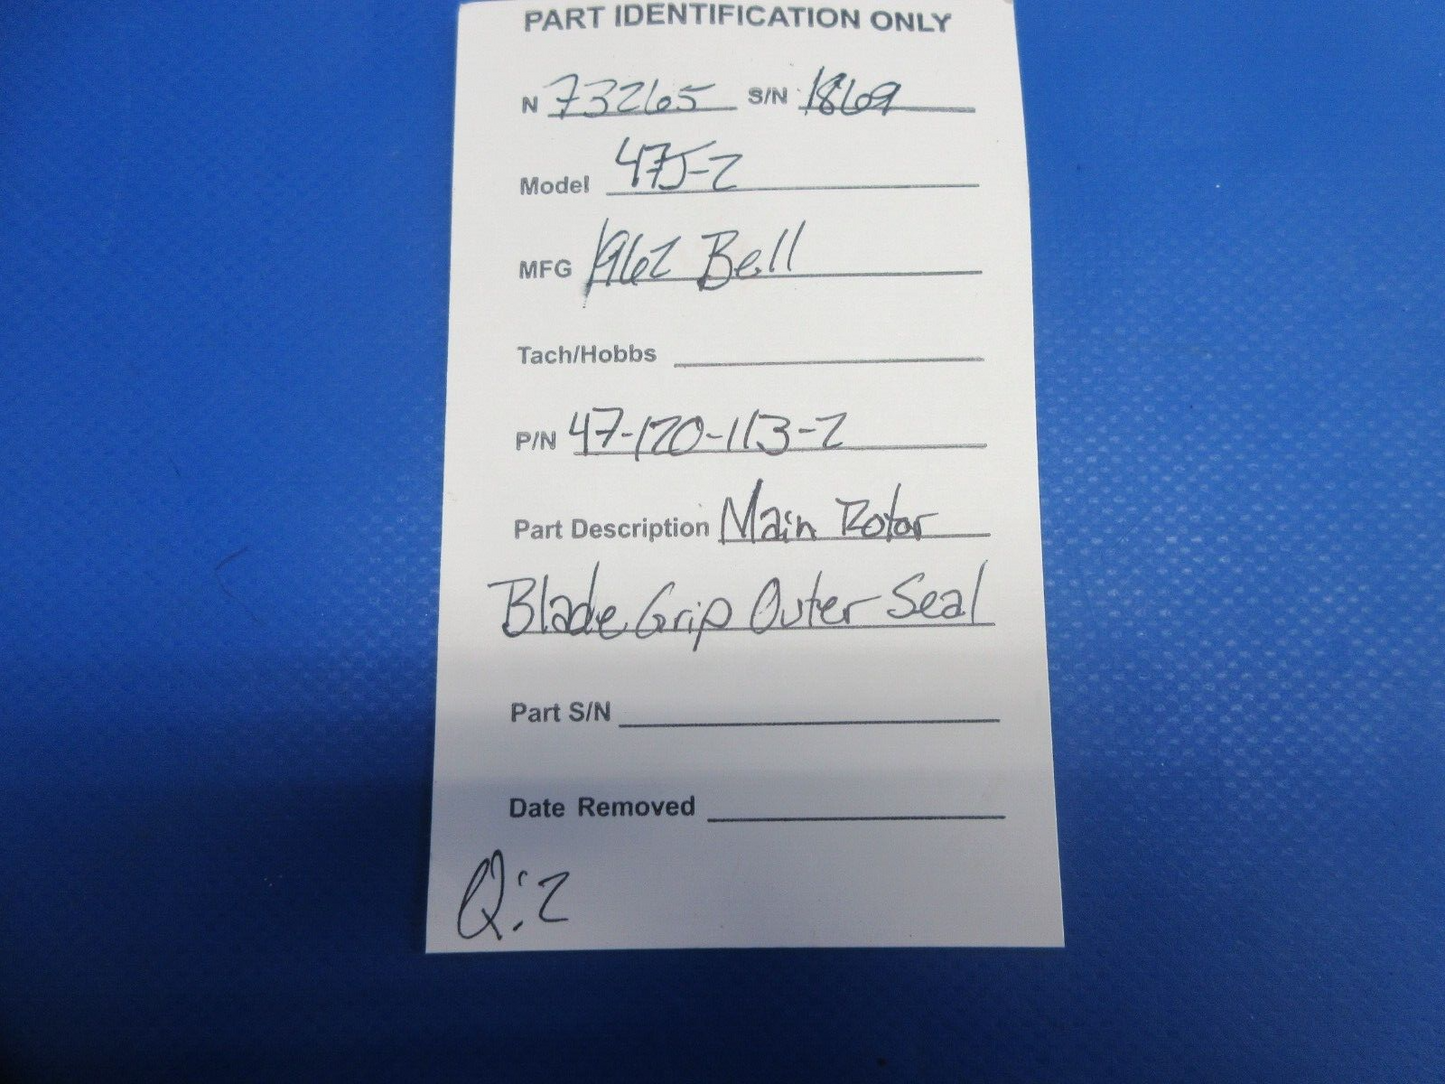 PART IDENTIFICATION ONLY
N 73265 S/N 1869
Model 47J-2
MFG 1962 Bell
Tach/Hobbs
P/N 47-120-113-2
Part Description Main Rotor
Blade Grip Outer Seal
Part S/N
Date Removed
Q:2